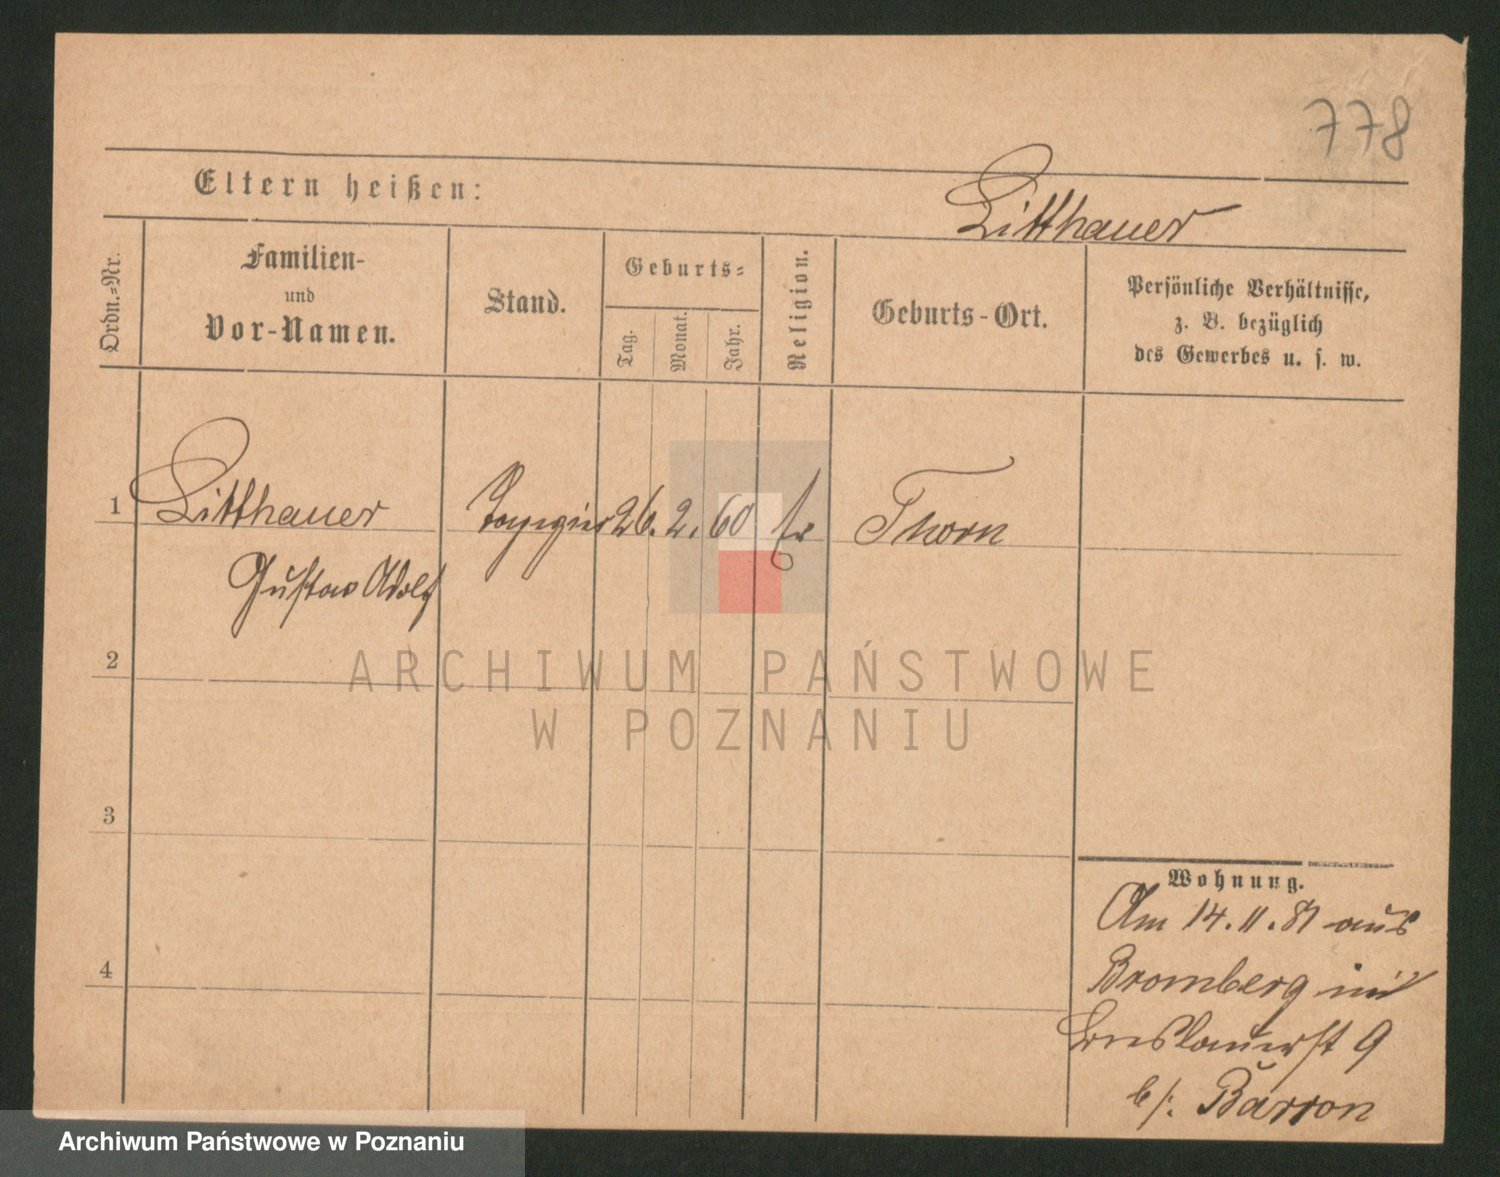 778
Eltern heißen:
Litthauer
Ordn.=Nr.
Familien-
und
Vor-Namen.
Stand.
Geburts=
Tag.
Monat.
Jahr.
Religion.
Geburts-Ort.
Persönliche Verhältnisse,
z. B. bezüglich
des Gewerbes u. s. w.
1 Litthauer 26. 2. 60 Thorn
Gustav Adolf
2
ARCHIWUM PAŃSTWOWE
W POZNANIU
3
4
Wohnung.
Am 14. 11. 87 aus
Bromberg
Breslauerst 9
b/: Barron
Archiwum Państwowe w Poznaniu